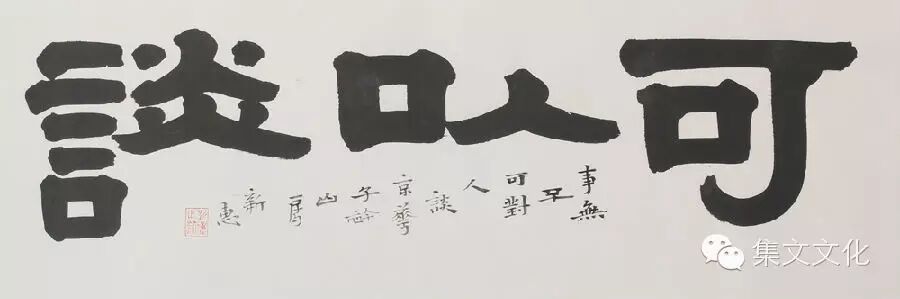 可以談
事無
不
可對
人
談
京華
山
新惠
集文文化